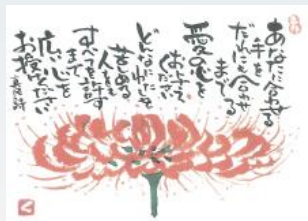 あなたに合わせる
手を
だれにも合せ
るまで
愛の心を
お与え
ください
どんなに
苦しめる
人をも
すべてを許す
まで
広い心を
お授けください